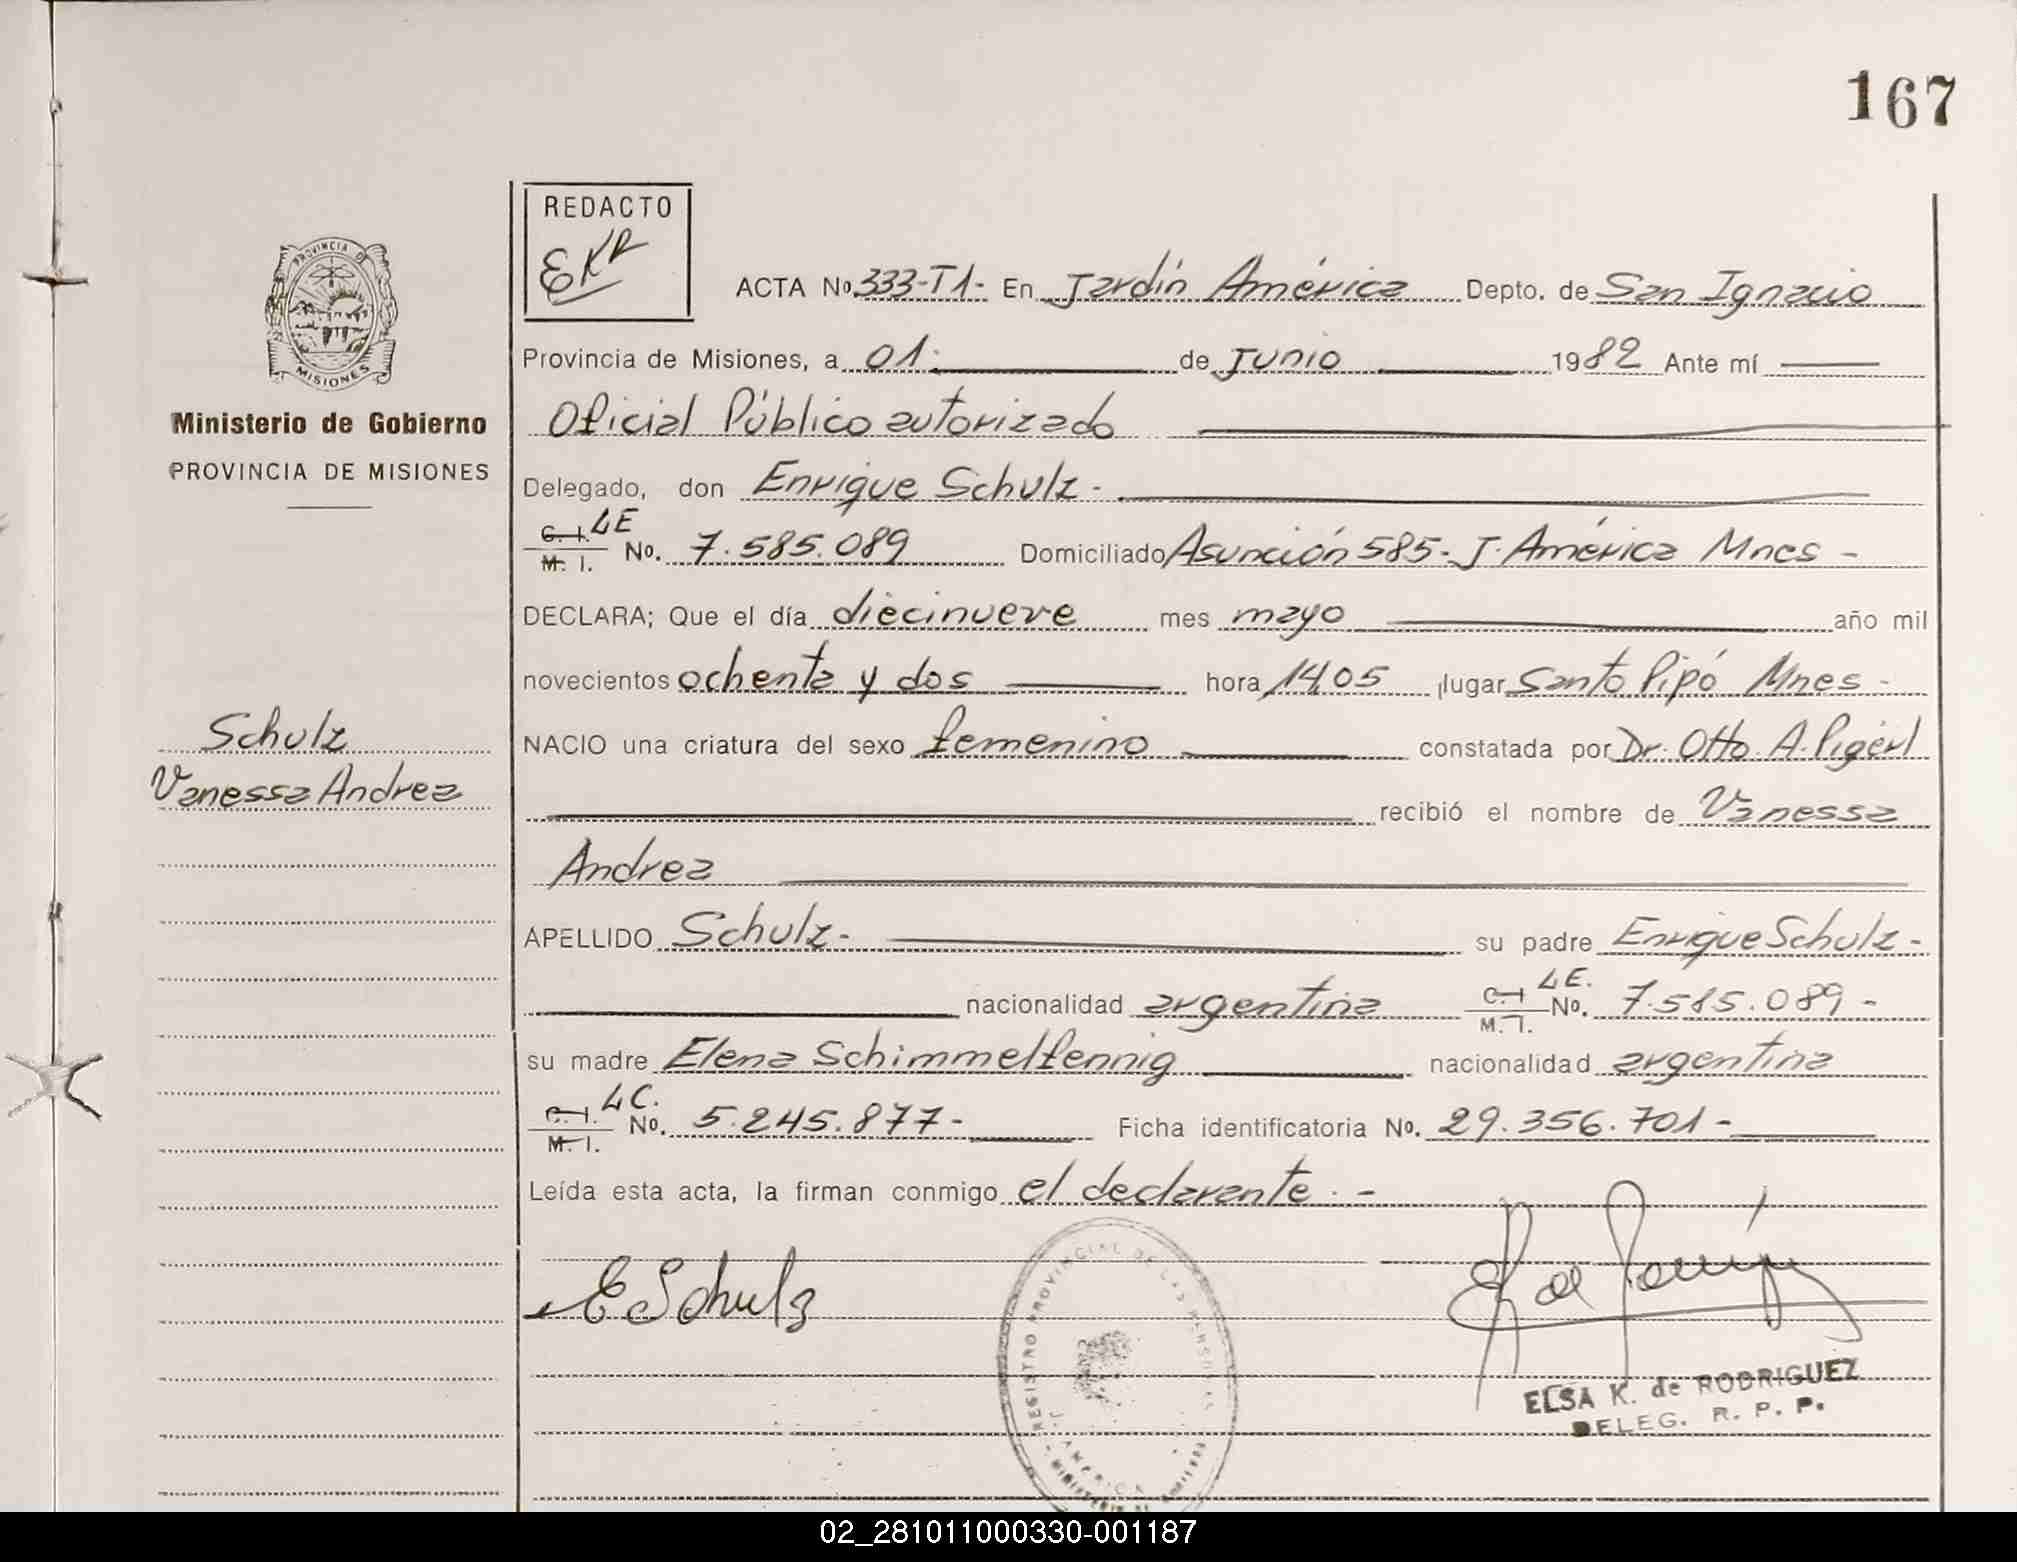 167
REDACTO
EKR
PROVINCIA DE
MISIONES
Ministerio de Gobierno
PROVINCIA DE MISIONES
Schulz
Vanessa Andrea
ACTA No. 333-T1- En Jardín América Depto. de San Ignacio
Provincia de Misiones, a 01. de Junio 1982 Ante mí
Oficial Público autorizado
Delegado, don Enrique Schulz-
C. I. LE
M. I. No. 7.585.089 Domiciliado Asunción 585- J. América Mnes -
DECLARA; Que el día diecinueve mes mayo año mil
novecientos ochenta y dos hora 14,05 lugar Santo Pipó Mnes -
NACIO una criatura del sexo femenino constatada por Dr. Otto A.
recibió el nombre de Vanessa
Andrea
APELLIDO Schulz- su padre Enrique Schulz-
nacionalidad argentina C. I LE. M. I. No. 7.585.089 -
su madre Elena Schimmelfennig nacionalidad argentina
C. I. LC.
M. I. No. 5.245.877- Ficha identificatoria No. 29.356.701-
Leída esta acta, la firman conmigo el declarante. -
E Schulz
REGISTRO PROVINCIAL DE LAS PERSONAS
J. AMERICA
ELSA K. de RODRIGUEZ
DELEG. R. P. P.
02_281011000330-001187